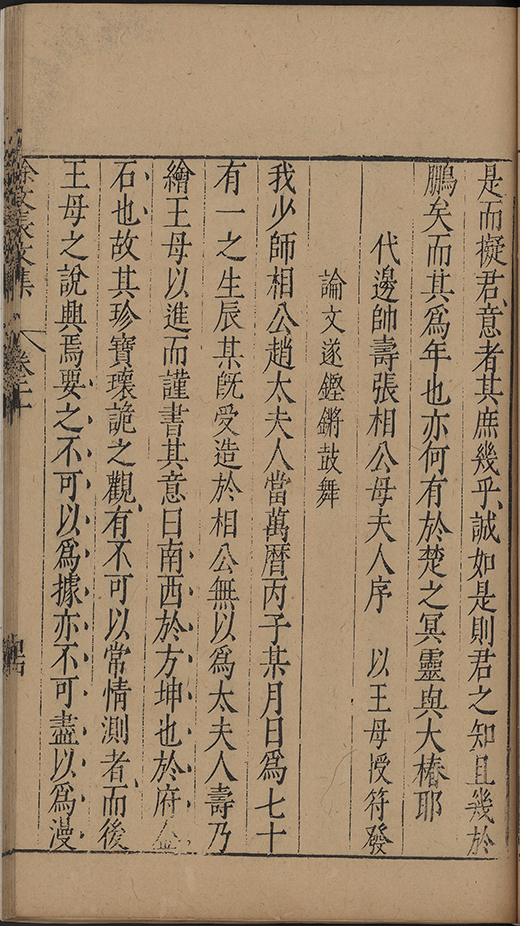 是而擬君、意者其庶幾乎、誠如是則君之知且幾於
鵬矣而其爲年也亦何有於楚之冥靈與大椿耶
代邊帥壽張相公母夫人序　以王母授符發
論文遂鏗鏘鼓舞
我少師相公趙太夫人當萬曆丙子某月日爲七十
有一之生辰某旣受造於相公無以爲太夫人壽乃
繪王母以進而謹書其意曰南西於方坤也於府金
石也故其珍寶瓌詭之觀、有不可以常情測者、而後
王母之說興焉要之不可以爲據亦不可盡以爲漫
徐文長文集　卷二